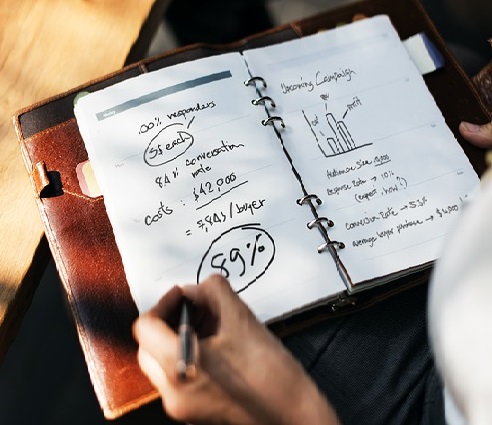 00% responders
$5 each
84% conversation
rate
costs: $42,000
= 5,843/buyer
89%
Upcoming Campaign
profit
Audience Size
Response Rate → 10%
(expect. how!)
conversion Rate →
average buyer purchase →